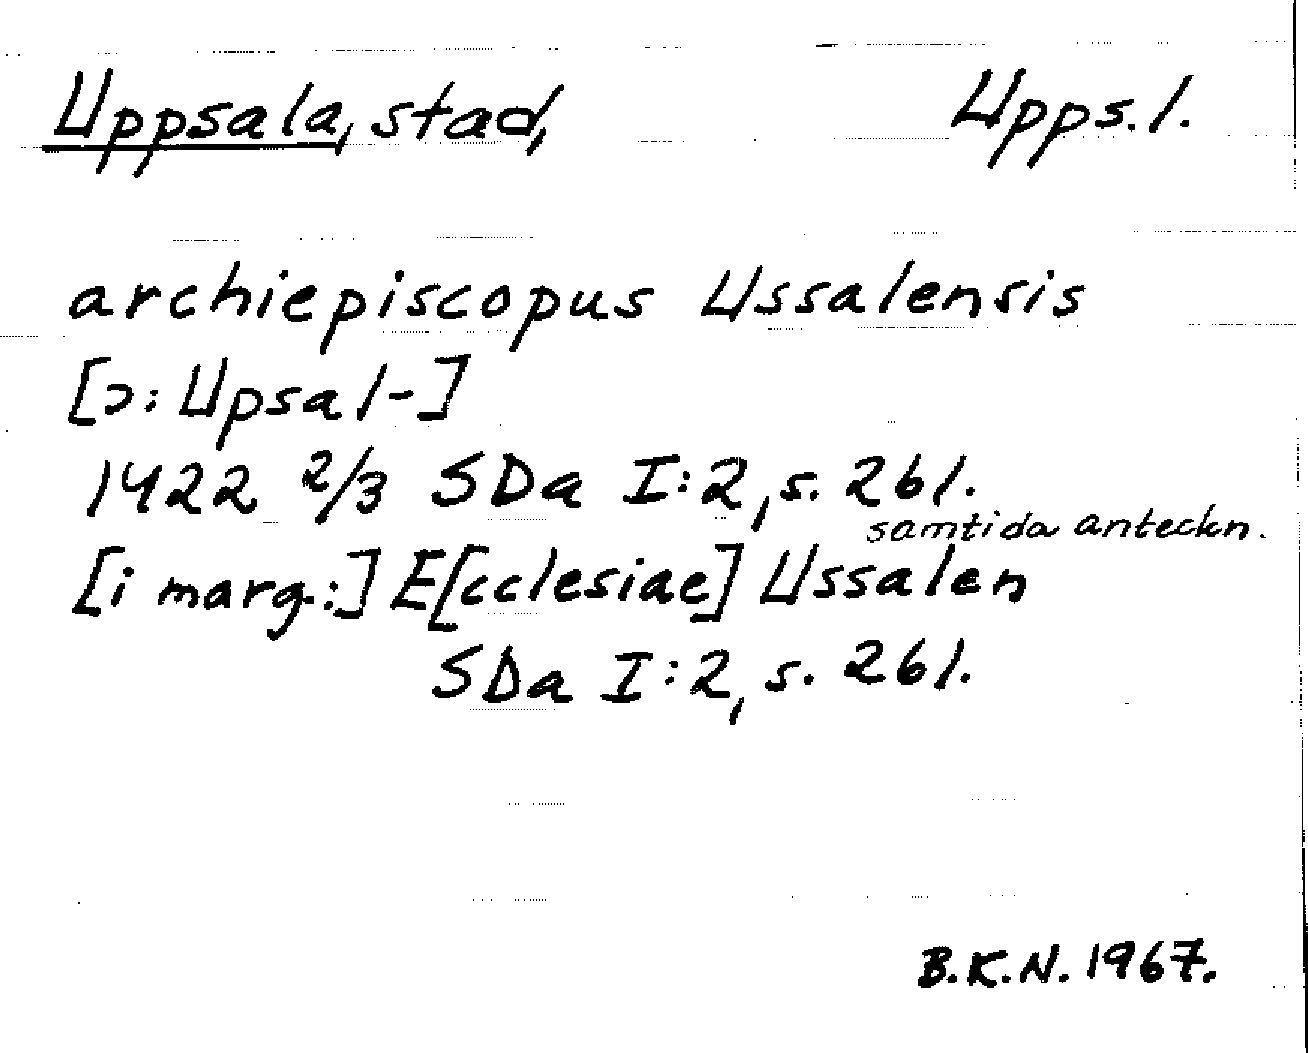 Uppsala, stad, Upps. l.
archiepiscopus Ussalensis
[ɔ: Upsal-]
1422 2/3 SDa I:2, s. 261.
samtida anteckn.
[i marg.:] E[cclesiae] Ussalen
SDa I:2, s. 261.
B.K.N. 1967.